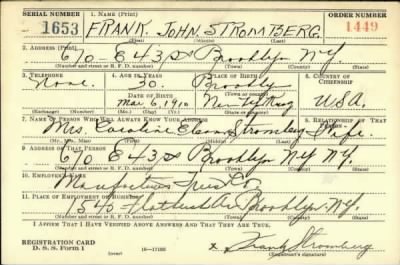 SERIAL NUMBER 1. NAME (Print) ORDER NUMBER
1653 FRANK. JOHN. STROMBERG. 1449
(First) (Middle) (Last)
2. ADDRESS (Print)
670 E 43 St Brooklyn N.Y.
(Number and street or R. F. D. number) (Town) (County) (State)
3. TELEPHONE 4. AGE IN YEARS 5. PLACE OF BIRTH 6. COUNTRY OF CITIZENSHIP
None. 30 Brooklyn
DATE OF BIRTH (Town or county)
Mar 6, 1910 U.S.A.
(Exchange) (Number) (Mo.) (Day) (Yr.) (State or country)
7. NAME OF PERSON WHO WILL ALWAYS KNOW YOUR ADDRESS 8. RELATIONSHIP OF THAT PERSON
Mrs. Caroline Stromberg Wife
(Mr., Mrs., Miss) (First) (Middle) (Last)
9. ADDRESS OF THAT PERSON
670 E 43 St Brooklyn NY NY.
(Number and street or R. F. D. number) (Town) (County) (State)
10. EMPLOYER'S NAME
Manufacturers Trust Co
11. PLACE OF EMPLOYMENT OR BUSINESS
1545 Flatbush Ave Brooklyn. NY.
(Number and street or R. F. D. number) (Town) (County) (State)
I AFFIRM THAT I HAVE VERIFIED ABOVE ANSWERS AND THAT THEY ARE TRUE.
REGISTRATION CARD
D. S. S. Form 1 (over) x Frank J Stromberg
(Registrant's signature)